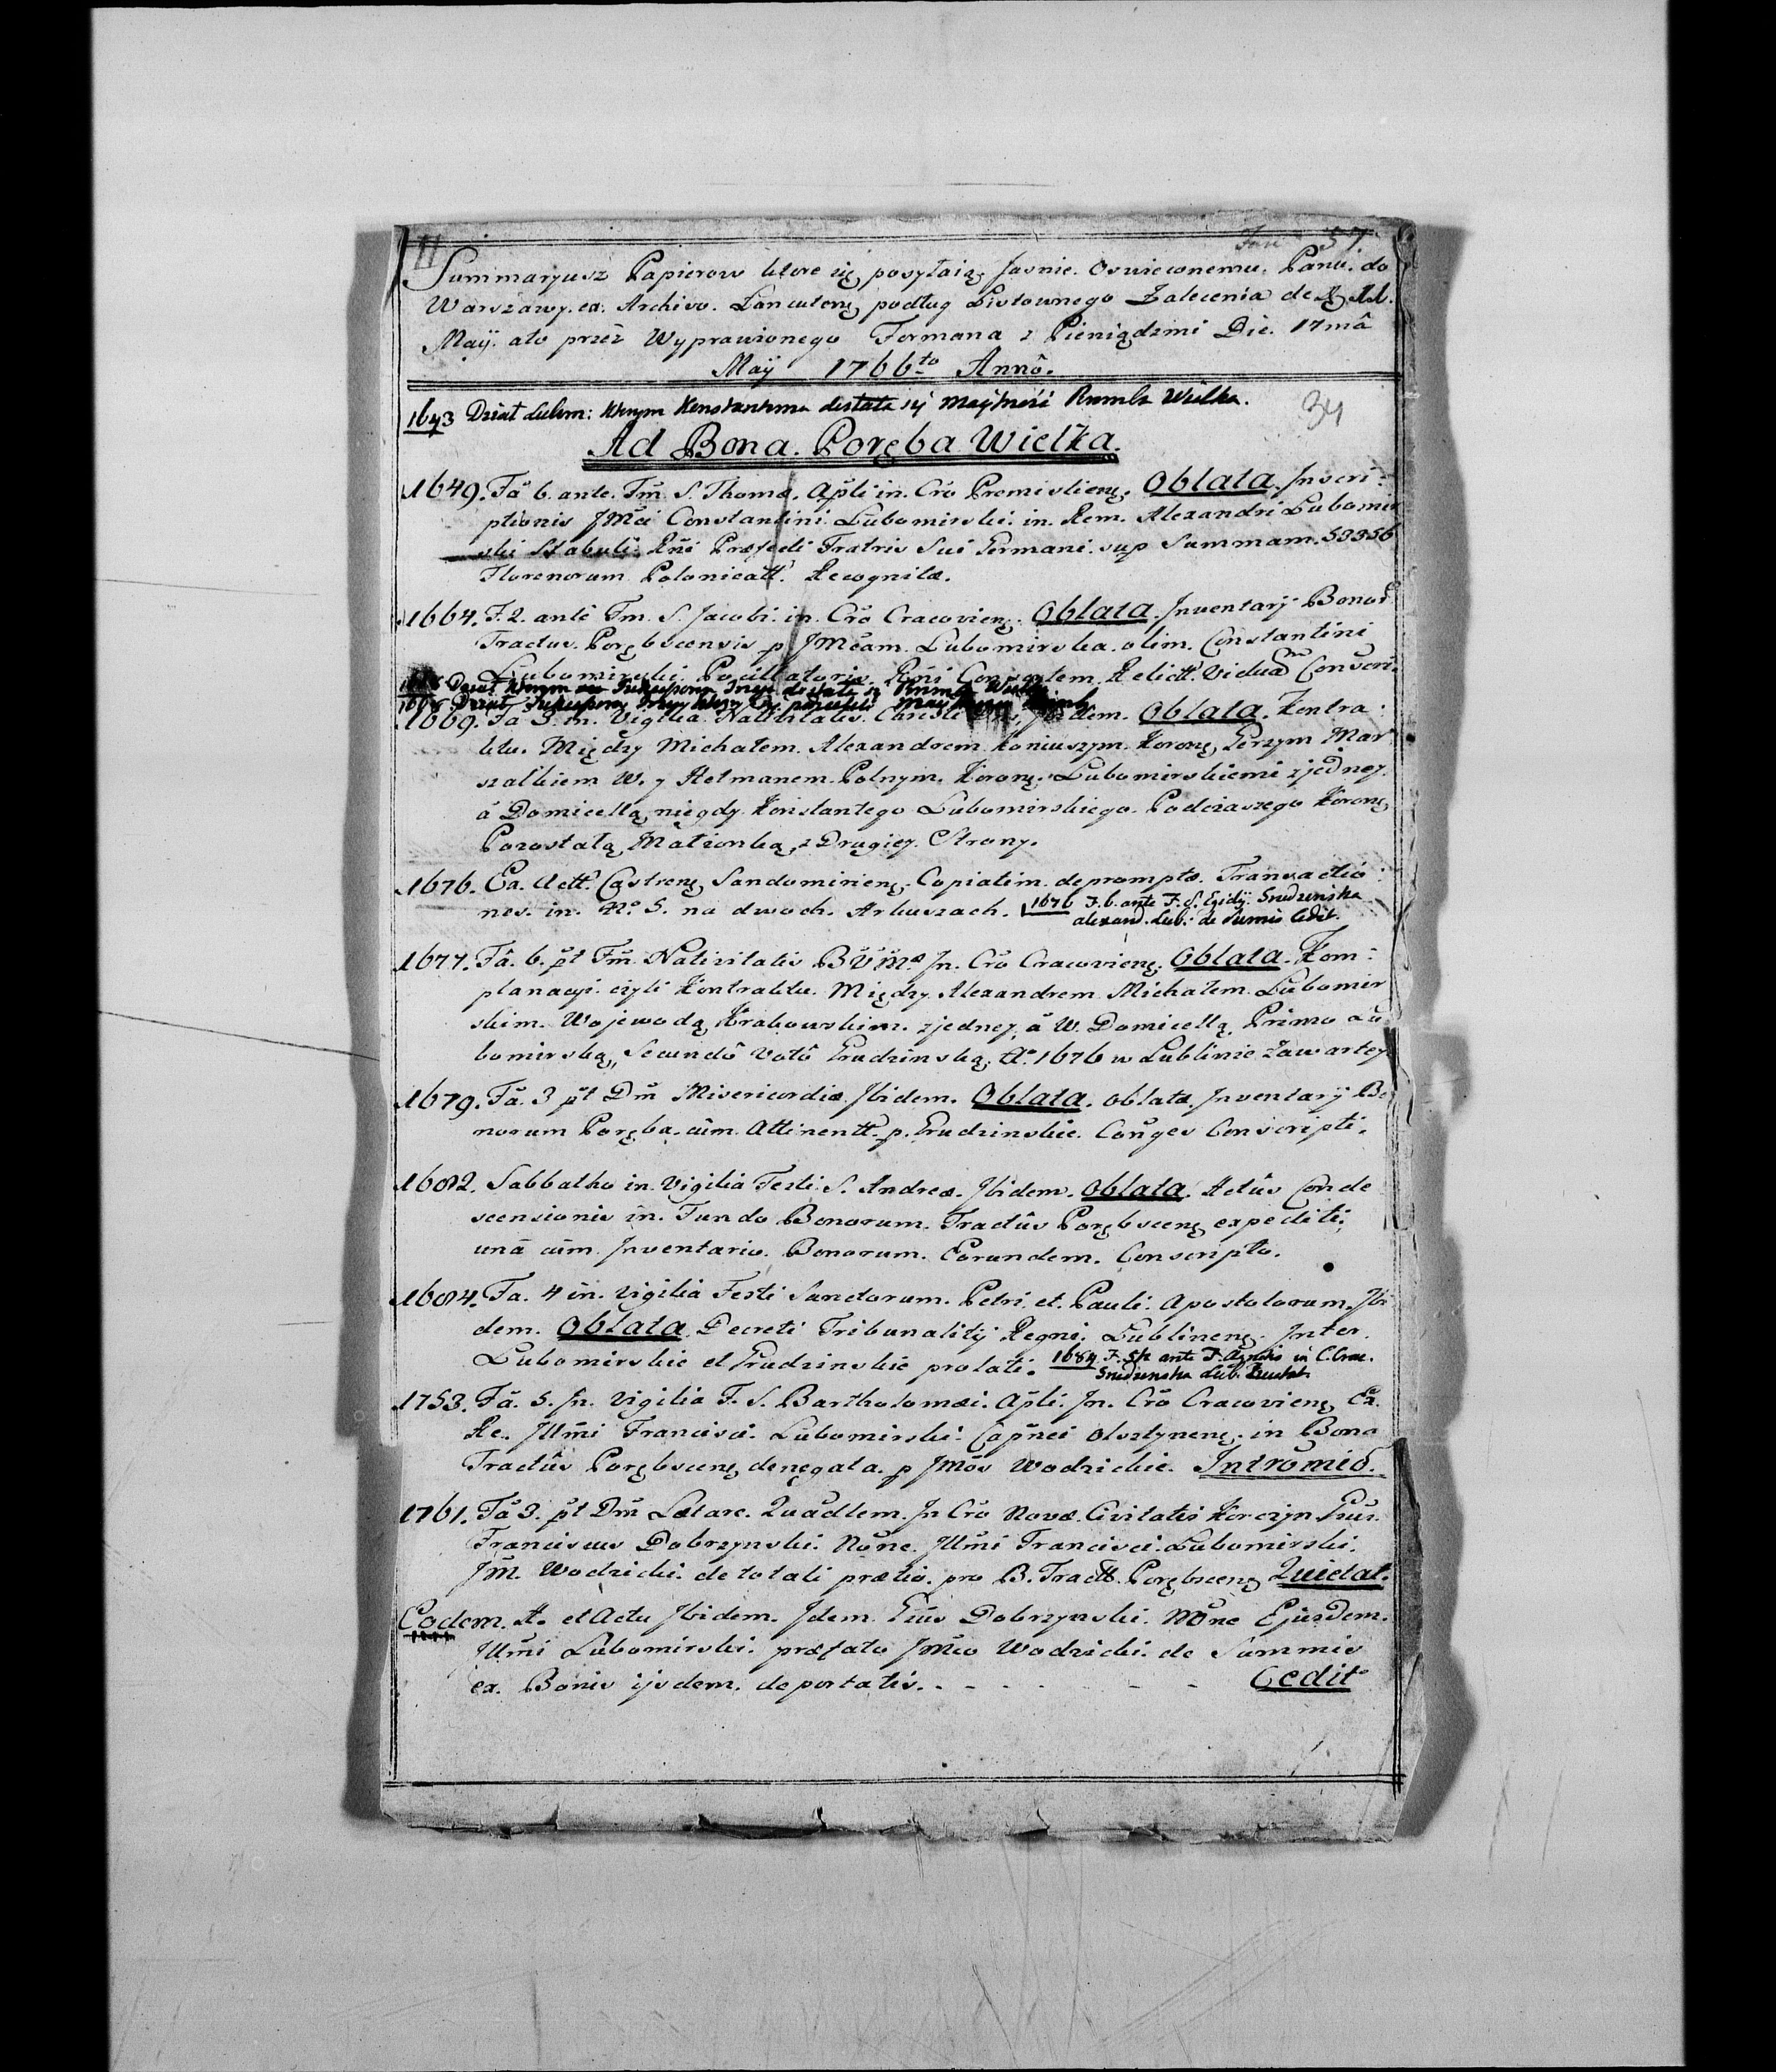 II 37.
Summaryusz Papierow ktore się posyłaią Jasnie Oswieconemu Panu do
Warszawy. ex. Archivo. Lancuten podług Listownego Zalecenia de
Maij. ato przez Wyprawionego Formana z Pieniądzmi Die. 17mâ
Maij 1766to Annô.
1643 Dział Lubom: ktorym Konstantemu dostała się Maiętność Wielka.
34
Ad Bona. Poręba Wielka.
1649. Fâ 6. ante. Fm̃ S. Thomæ. Apli in. Crõ Premislien. Oblata. Inscri:
ptionis JMci Constantini. Lubomirski. in. Rem. Alexandri Lubomir
ski Stabuli. Rñi Præfecti Fratris Sui Germani. sup Summam. 53356
Florenorum Polonicatt. Recognitæ.
1664. F. 2. ante Fm. S. Jacobi. in. Crõ Cracovien. Oblata. Inventarij Bonor̃
Tractus. Porębscensis p JMcam. Lubomirska. olim. Constantini
Lubomirski. Pocillatoris. Rñi Consortem. Relictt. Viduam Conscri.
1669. Fâ 3. in. Vigilia. Nativitatis. Christi Ibidem. Oblata. Kontra:
ktu. Między Michałem. Alexandrem. Koniuszym. Koron, Jerzym Mar
szałkiem W. y Hetmanem. Polnym. Koron. Lubomirskiemi z jedney.
á Domicellą niegdy. Konstantego Lubomirskiego. Podczaszego Koron
Pozostałą Małżonką, z Drugiey. Strony.
1676. Ex. Actt. Castren, Sandomirien. Copiatim. depromptæ. Transactio:
nes. in. Nº 5. na dwoch. Arkuszach. 1676 F. 6. ante F. S. Egidij Grudzinska
alexand. Lub. de Sumis Cedit.
1677. Fâ. 6. pt Fm̃. Nativitatis BVMæ In. Crõ Cracovien. Oblata. Kom:
planacyi. czyli Kontraktu. Między Alexandrem Michałem. Lubomir
skim. Wojewodą Krakowskim. z jedney, á W. Domicellą, Primo Lu
bomirską, Secundô Votô Grudzinską. Aº 1676 w Lublinie Zawartey.
1679. Fâ. 3 pt Dm̃ Misericordiæ Ibidem. Oblata. oblatæ. Inventarij Bo
norum Poręba. cùm. Attinentt. p. Grudzinskie. Coñges Conscripti.
1682. Sabbatho in Vigilia Festi. S. Andreæ. Ibidem. Oblata. Actûs Conde
scensionis in. Fundo Bonorum. Tractûs Porębscen expediti,
unà cùm Inventario. Bonorum. Eorundem. Conscripto.
1684. Fa. 4 in. Vigilia Festi Sanctorum. Petri. et. Pauli. Apostolorum. Ibi
dem. Oblata. Decreti Tribunalitij Regni. Lublinen. Inter.
Lubomirskie et Grudzinskie prolati. 1684 F. 5ta ante F. Agnetis in C. Crac.
Grudzinska Lub.
1753. Fâ. 5. In. Vigilia F. S. Bartholomæi. Apli. In. Crõ Cracovien, Ex.
Re. Illm̃i Francisci. Lubomirski. Capñei Olsztynen. in Bona
Tractûs Porębscen, denegata. p JMos Wodzickie. Intromio.
1761. Fâ 3. pt Dm̃ Lætare. Quadlem. In Crõ Novæ. Civitatis Korczyn Grus.
Franciscus Dobrzynski. Noñe. Illm̃i Francisci. Lubomirski.
Jm̃. Wodzicki. de totali prætio. pro B. Tractt. Porębscen Quietat.
Eodem. A. et Actu Ibidem. Idem. Grus Dobrzynski. Noñe Ejusdem.
Illm̃i Lubomirski. præfato Jm̃co Wodzicki. de Summis
ex. Bonis ijsdem. deportatis. - - - - - Cedit